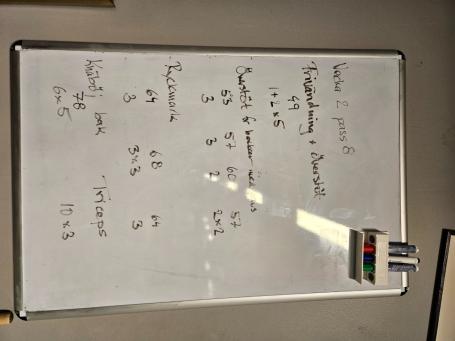 Vecka 2 pass 8
Frivändning + överstöt
49
1+2 x 5
Överstöt fr backen
53 57 60 57
3 3 2 2x2
Ryckmark
64 68 64
3 3x3 3
Knäböj bak Triceps
78
6x5 10x3